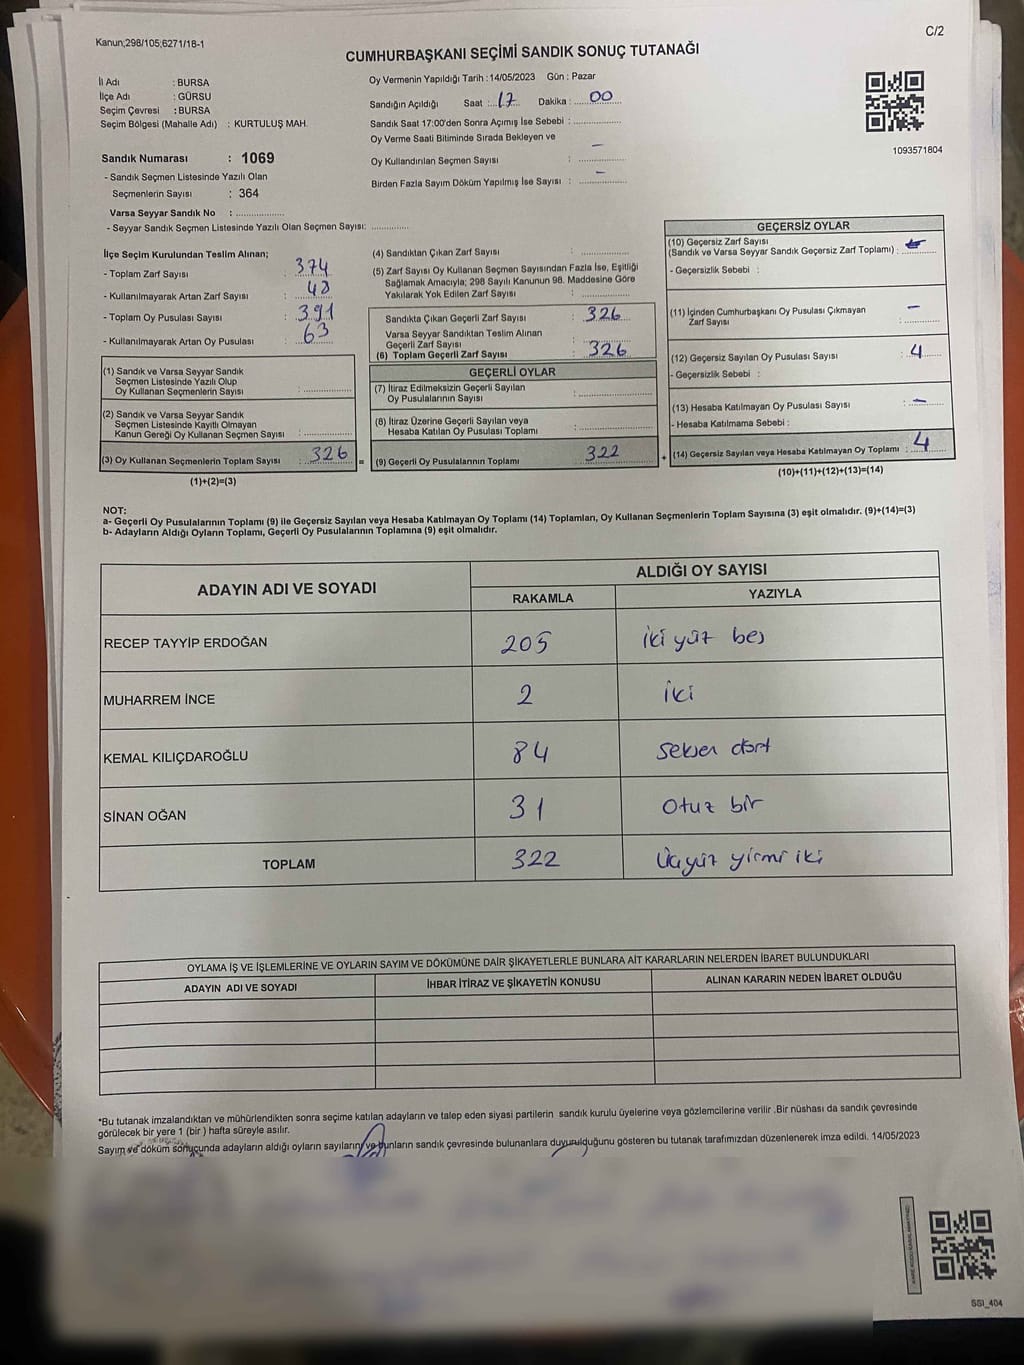 Kanun;298/105;6271/16-1
C/2
CUMHURBAŞKANI SEÇİMİ SANDIK SONUÇ TUTANAĞI
İl Adı : BURSA
İlçe Adı : GÜRSU
Seçim Çevresi : BURSA
Seçim Bölgesi (Mahalle Adı) : KURTULUŞ MAH.
Oy Vermenin Yapıldığı Tarih : 14/05/2023 Gün : Pazar
Sandığın Açıldığı Saat : 17 Dakika : 00
Sandık Saat 17:00'den Sonra Açımış İse Sebebi :
Oy Verme Saati Bitiminde Sırada Bekleyen ve
Oy Kullandırılan Seçmen Sayısı : –
Birden Fazla Sayım Döküm Yapılmış İse Sayısı : –
1093571804
Sandık Numarası : 1069
- Sandık Seçmen Listesinde Yazılı Olan
Seçmenlerin Sayısı : 364
Varsa Seyyar Sandık No :
- Seyyar Sandık Seçmen Listesinde Yazılı Olan Seçmen Sayısı:
İlçe Seçim Kurulundan Teslim Alınan;
- Toplam Zarf Sayısı : 374
- Kullanılmayarak Artan Zarf Sayısı : 48
- Toplam Oy Pusulası Sayısı : 391
- Kullanılmayarak Artan Oy Pusulası : 63
(1) Sandık ve Varsa Seyyar Sandık
Seçmen Listesinde Yazılı Olup
Oy Kullanan Seçmenlerin Sayısı :
(2) Sandık ve Varsa Seyyar Sandık
Seçmen Listesinde Kayıtlı Olmayan
Kanun Gereği Oy Kullanan Seçmen Sayısı :
(3) Oy Kullanan Seçmenlerin Toplam Sayısı : 326 =
(1)+(2)=(3)
(4) Sandıktan Çıkan Zarf Sayısı :
(5) Zarf Sayısı Oy Kullanan Seçmen Sayısından Fazla İse, Eşitliği
Sağlamak Amacıyla; 298 Sayılı Kanunun 98. Maddesine Göre
Yakılarak Yok Edilen Zarf Sayısı :
Sandıkta Çıkan Geçerli Zarf Sayısı : 326
Varsa Seyyar Sandıktan Teslim Alınan
Geçerli Zarf Sayısı :
(6) Toplam Geçerli Zarf Sayısı : 326
GEÇERLİ OYLAR
(7) İtiraz Edilmeksizin Geçerli Sayılan
Oy Pusulalarının Sayısı :
(8) İtiraz Üzerine Geçerli Sayılan veya
Hesaba Katılan Oy Pusulası Toplamı :
(9) Geçerli Oy Pusulalarının Toplamı : 322 +
GEÇERSİZ OYLAR
(10) Geçersiz Zarf Sayısı
(Sandık ve Varsa Seyyar Sandık Geçersiz Zarf Toplamı) :
- Geçersizlik Sebebi :
(11) İçinden Cumhurbaşkanı Oy Pusulası Çıkmayan
Zarf Sayısı : –
(12) Geçersiz Sayılan Oy Pusulası Sayısı : 4
- Geçersizlik Sebebi :
(13) Hesaba Katılmayan Oy Pusulası Sayısı : –
- Hesaba Katılmama Sebebi :
(14) Geçersiz Sayılan veya Hesaba Katılmayan Oy Toplamı : 4
(10)+(11)+(12)+(13)=(14)
NOT:
a- Geçerli Oy Pusulalarının Toplamı (9) ile Geçersiz Sayılan veya Hesaba Katılmayan Oy Toplamı (14) Toplamları, Oy Kullanan Seçmenlerin Toplam Sayısına (3) eşit olmalıdır. (9)+(14)=(3)
b- Adayların Aldığı Oyların Toplamı, Geçerli Oy Pusulalarının Toplamına (9) eşit olmalıdır.
ADAYIN ADI VE SOYADI
ALDIĞI OY SAYISI
RAKAMLA YAZIYLA
RECEP TAYYİP ERDOĞAN 205 iki yüz beş
MUHARREM İNCE 2 iki
KEMAL KILIÇDAROĞLU 84 seksen dört
SİNAN OĞAN 31 otuz bir
TOPLAM 322 üçyüz yirmi iki
OYLAMA İŞ VE İŞLEMLERİNE VE OYLARIN SAYIM VE DÖKÜMÜNE DAİR ŞİKAYETLERLE BUNLARA AİT KARARLARIN NELERDEN İBARET BULUNDUKLARI
ADAYIN ADI VE SOYADI İHBAR İTİRAZ VE ŞİKAYETİN KONUSU ALINAN KARARIN NEDEN İBARET OLDUĞU
*Bu tutanak imzalandıktan ve mühürlendikten sonra seçime katılan adayların ve talep eden siyasi partilerin sandık kurulu üyelerine veya gözlemcilerine verilir .Bir nüshası da sandık çevresinde
görülecek bir yere 1 (bir ) hafta süreyle asılır.
Sayım ve döküm sonucunda adayların aldığı oyların sayılarını ve bunların sandık çevresinde bulunanlara duyurulduğunu gösteren bu tutanak tarafımızdan düzenlenerek imza edildi. 14/05/2023
SSI_404